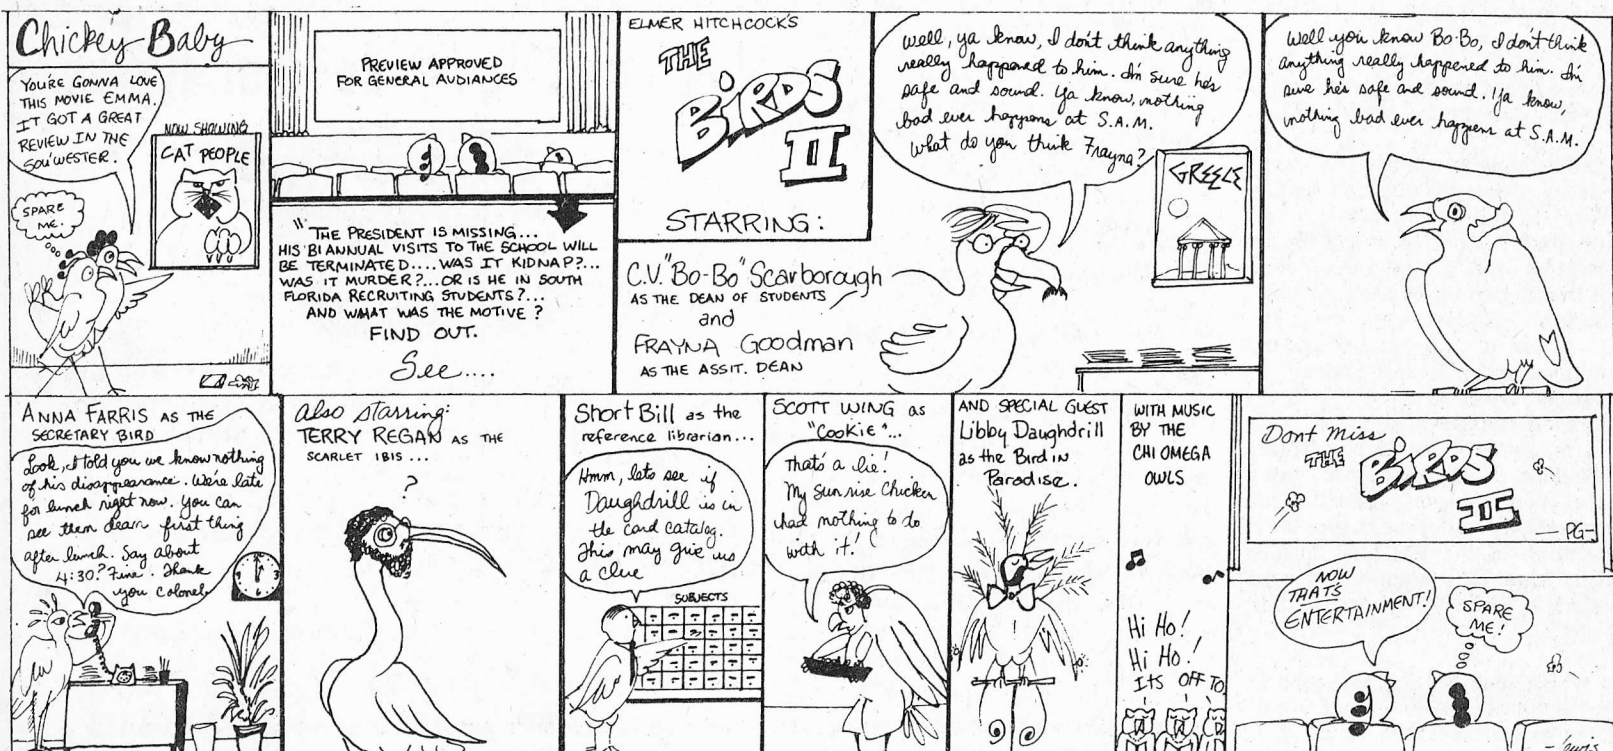 Chickey Baby
YOU'RE GONNA LOVE
THIS MOVIE EMMA.
IT GOT A GREAT
REVIEW IN THE
SOU'WESTER.
SPARE
ME.
NOW SHOWING
CAT PEOPLE
PREVIEW APPROVED
FOR GENERAL AUDIANCES
"THE PRESIDENT IS MISSING...
HIS BIANNUAL VISITS TO THE SCHOOL WILL
BE TERMINATED.... WAS IT KIDNAP?...
WAS IT MURDER?... OR IS HE IN SOUTH
FLORIDA RECRUITING STUDENTS?...
AND WHAT WAS THE MOTIVE?
FIND OUT.
See....
ELMER HITCHCOCK'S
THE
BIRDS
II
STARRING:
C.V. "Bo-Bo" Scarborough
AS THE DEAN OF STUDENTS
and
FRAYNA Goodman
AS THE ASSIT. DEAN
Well, ya know, I don't think anything
really happened to him. I'm sure he's
safe and sound. Ya know, nothing
bad ever happens at S.A.M.
What do you think Frayna?
GREECE
Well you know Bo-Bo, I don't think
anything really happened to him. I'm
sure he's safe and sound. Ya know,
nothing bad ever happens at S.A.M.
ANNA FARRIS AS THE
SECRETARY BIRD
Look, I told you we know nothing
of his disappearance. We're late
for lunch right now. You can
see them dean first thing
after lunch. Say about
4:30? Fine. Thank
you Colonel.
also starring:
TERRY REGAN AS THE
SCARLET IBIS ...
?
Short Bill as the
reference librarian...
Hmm, lets see if
Daughdrill is in
the card catalog.
This may give us
a clue
SUBJECTS
SCOTT WING as
"COOKIE"...
That's a lie!
My Sunrise Chicken
had nothing to do
with it!
AND SPECIAL GUEST
Libby Daughdrill
as the Bird in
Paradise.
WITH MUSIC
BY THE
CHI OMEGA
OWLS
Hi Ho!
Hi Ho!
ITS OFF TO
Dont Miss
THE BIRDS
II
—PG—
NOW
THAT'S
ENTERTAINMENT!
SPARE
ME!
Lewis